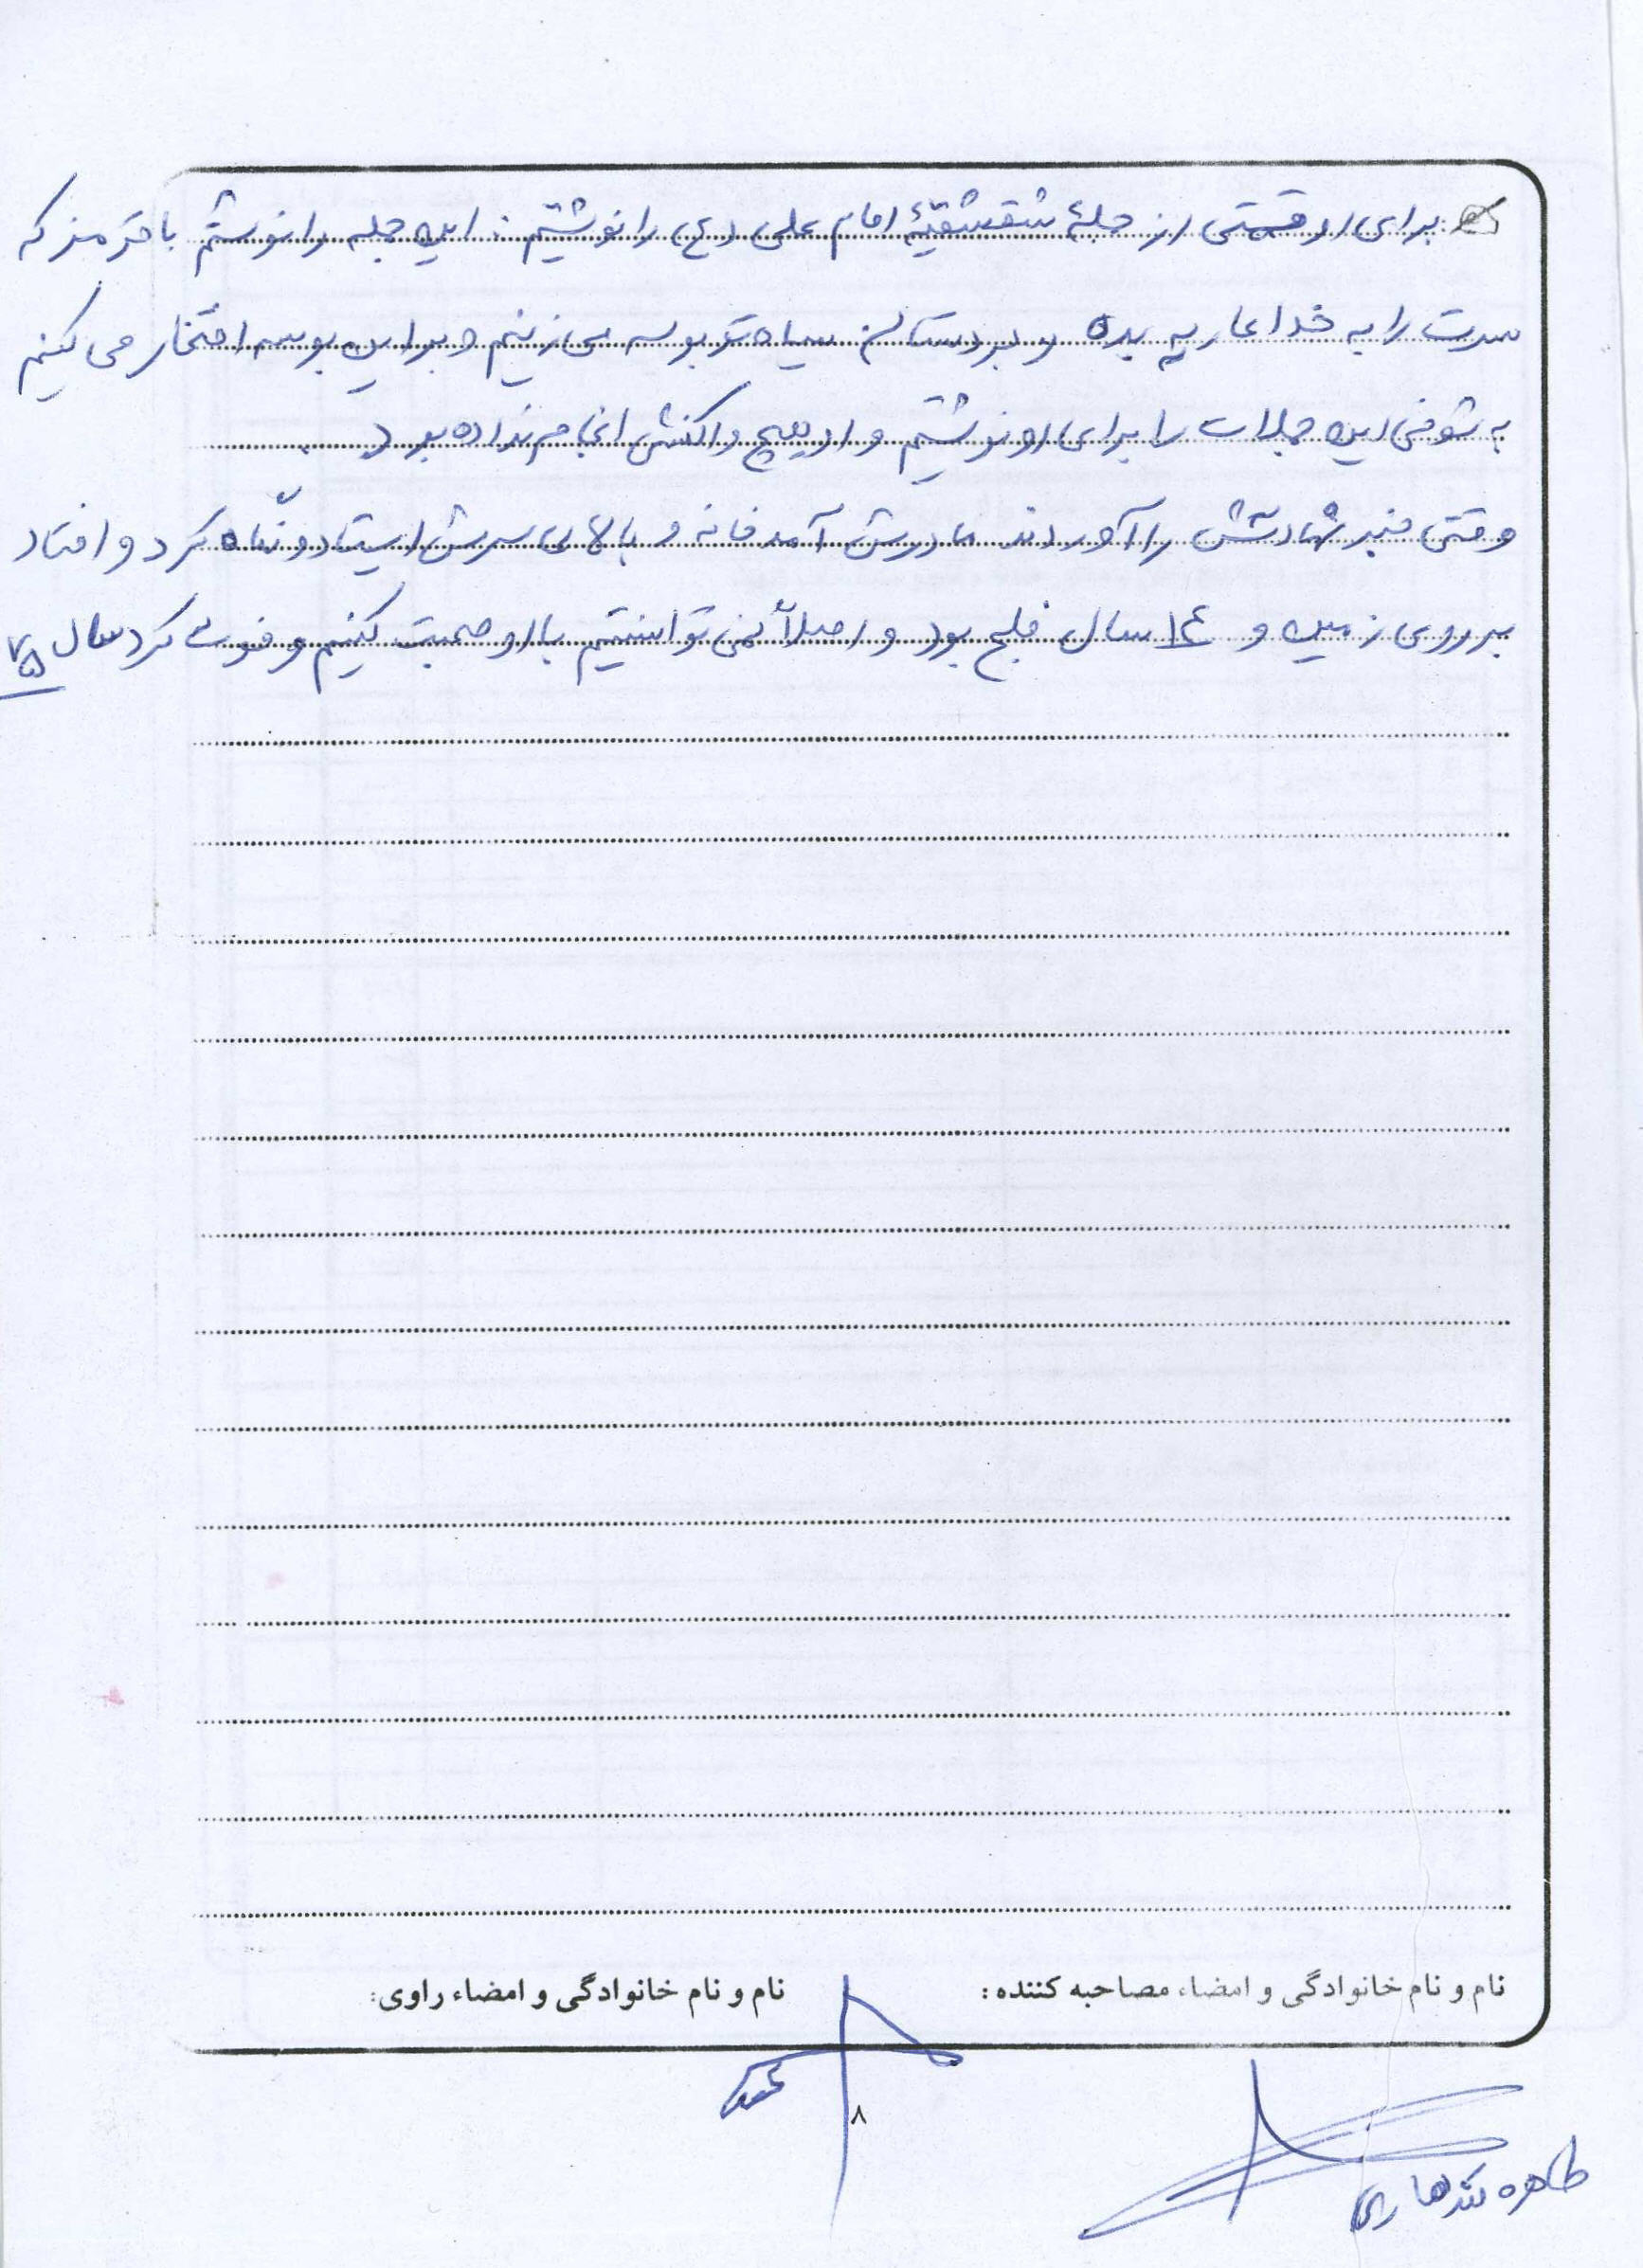 برای او قسمتی از جملهٔ شقشقیهٔ امام علی (ع) را نوشتیم: این جمله را نوشتم با قرمز که
سرت را به خدا عاریه بده و بر دستان سیاه تو بوسه می‌زنیم و بر این بوسه افتخار می‌کنیم
به شوخی این جملات را برای او نوشتیم و او هیچ واکنشی انجام نداده بود.
وقتی خبر شهادتش را آوردند مادرش آمد خانه و بالای سرش ایستاد و نگاه کرد و افتاد
بر روی زمین و ۱۴ سال فلج بود و اصلاً نمی‌توانستیم با او صحبت کنیم و فوت کرد سال ۷۵
نام و نام خانوادگی و امضاء مصاحبه کننده: نام و نام خانوادگی و امضاء راوی:
۸
طاهره قندهاری